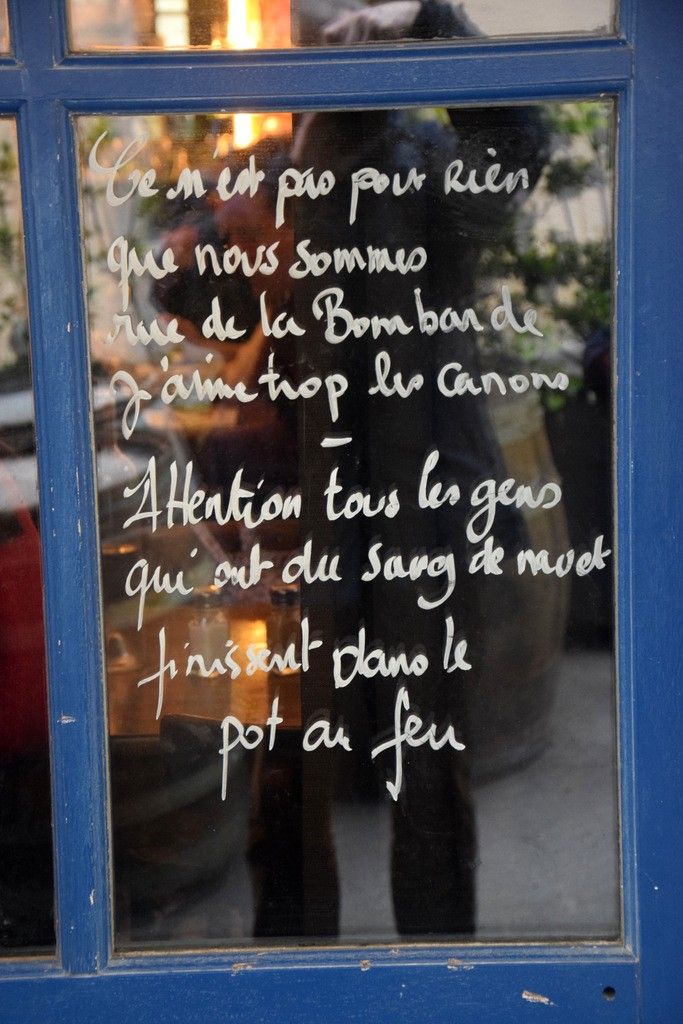 Ce n'est pas pour rien
que nous sommes
rue de la Bombarde
J'aime trop les canons
-
Attention tous les gens
qui ont du sang de navet
finissent dans le
pot au feu